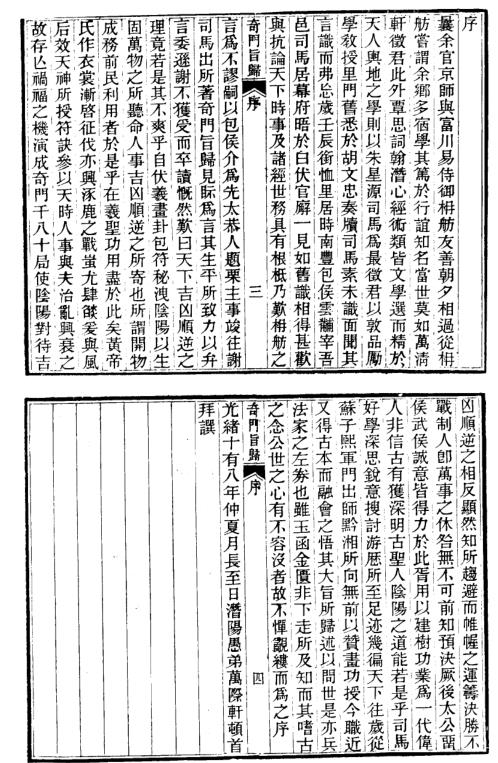 序
曩余官京師與富川易侍御枏舫友善朝夕相過從枏
舫嘗謂余鄉多宿學其篤於行誼知名當世莫如萬淸
軒徵君此外覃思詞翰潛心經術類皆文學選而精於
天人輿地之學則以朱星源司馬爲最徵君以敦品勵
學敎授里門舊悉於胡文忠奏牘司馬素未識面聞其
言識而弗忘歲壬辰銜恤里居時南豐包侯雲黼宰吾
邑司馬居幕府晤於白伏官廨一見如舊識相得甚歡
與抗論天下時事及諸經世務具有根柢乃歎枏舫之
奇門旨歸 序 三
言爲不謬嗣以包侯介爲先太恭人題栗主事竣往謝
司馬出所著奇門旨歸見眎爲言其生平所致力以弁
言委遜謝不獲受而卒讀慨然歎曰天下吉凶順逆之
理竟若是其不爽乎自伏羲畫卦包符秘洩陰陽以生
固萬物之所聽命人事吉凶順逆之所寄也所謂開物
成務前民利用者於是乎在羲聖功用盡於此矣黃帝
氏作衣裳漸啓征伐亦興涿鹿之戰蚩尤肆餤爰與風
后效天神所授符訣參以天時人事與夫治亂興衰之
故存亾禍福之機演成奇門千八十局使陰陽對待吉
凶順逆之相反顯然知所趨避而帷幄之運籌決勝不
戰制人卽萬事之休咎無不可前知預決厥後太公畱
侯武侯誠意皆得力於此胥用以建樹功業爲一代偉
人非信古有獲深明古聖人陰陽之道能若是乎司馬
好學深思銳意搜討游歷所至足迹幾徧天下往歲從
蘇子熙軍門出師黔湘所向無前以贊畫功授今職近
又得古本而融會之悟其大旨所歸述以問世是亦兵
法家之左券也雖玉函金匱非下走所及知而其嗜古
之念公世之心有不容沒者故不憚覼縷而爲之序
奇門旨歸 序 四
光緖十有八年仲夏月長至日潛陽愚弟萬際軒頓首
拜譔